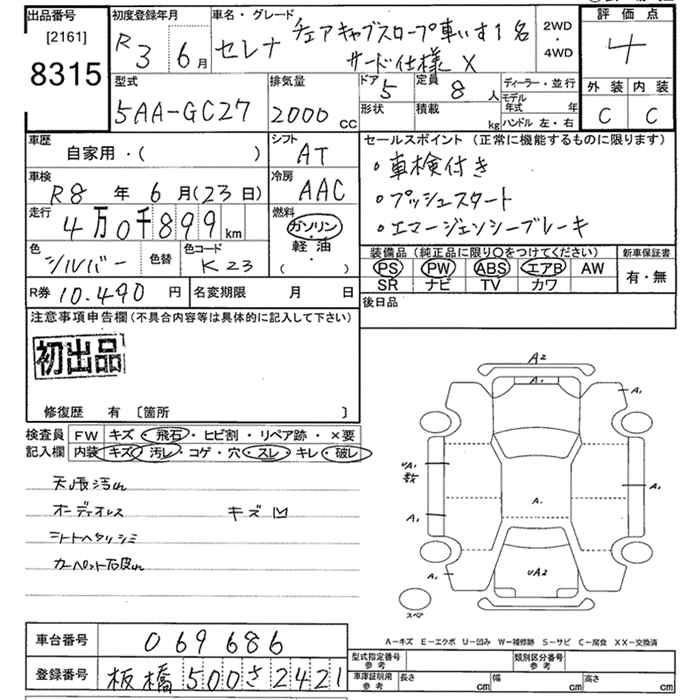 出品番号 [2161] 8315
初度登録年月 R3 6月
車名・グレード セレナ チェアキャブスロープ車いす1名 サード仕様 X
2WD ・ 4WD
評価点 4
外装 内装
C C
型式 5AA-GC27
排気量 2000 CC
ドア 5 定員 8人
形状 積載 kg
ディーラー・並行
モデル年式 年
ハンドル 左・右
車歴 自家用・( )
シフト AT
車検 R8年 6月(23日)
冷房 AAC
走行 4万0千899km
燃料 ガソリン・軽油・( )
色 シルバー 色替 色コード K23
R券 10.490円 名変期限 月 日
セールスポイント (正常に機能するものに限ります)
・車検付き
・プッシュスタート
・エマージェンシーブレーキ
装備品 (純正品に限り○をつけてください) 新車保証書
PS PW ABS エアB AW 有・無
SR ナビ TV カワ
後日品
注意事項申告欄 (不具合内容等は具体的に記入して下さい)
初出品
修復歴 有 〔箇所 〕
検査員 FW キズ ・飛石・ ヒビ割・リペア跡・×要
記入欄 内装 キズ・汚レ・コゲ・穴・スレ・キレ・破レ
天張汚れ
オーディオレス キズ凹
シートヘタリシミ
カーペット破れ
A2
A1
A1
UA1 数
A1
A.
A1
A1
UA2
スペア
A-キズ E-エクボ U-凹み W-補修跡 S-サビ C-腐食 XX-交換済
車台番号 069686
登録番号 板橋500さ2421
型式指定番号 参考 類別区分番号 参考
車庫証明用 参考 長さ cm 幅 cm 高さ cm